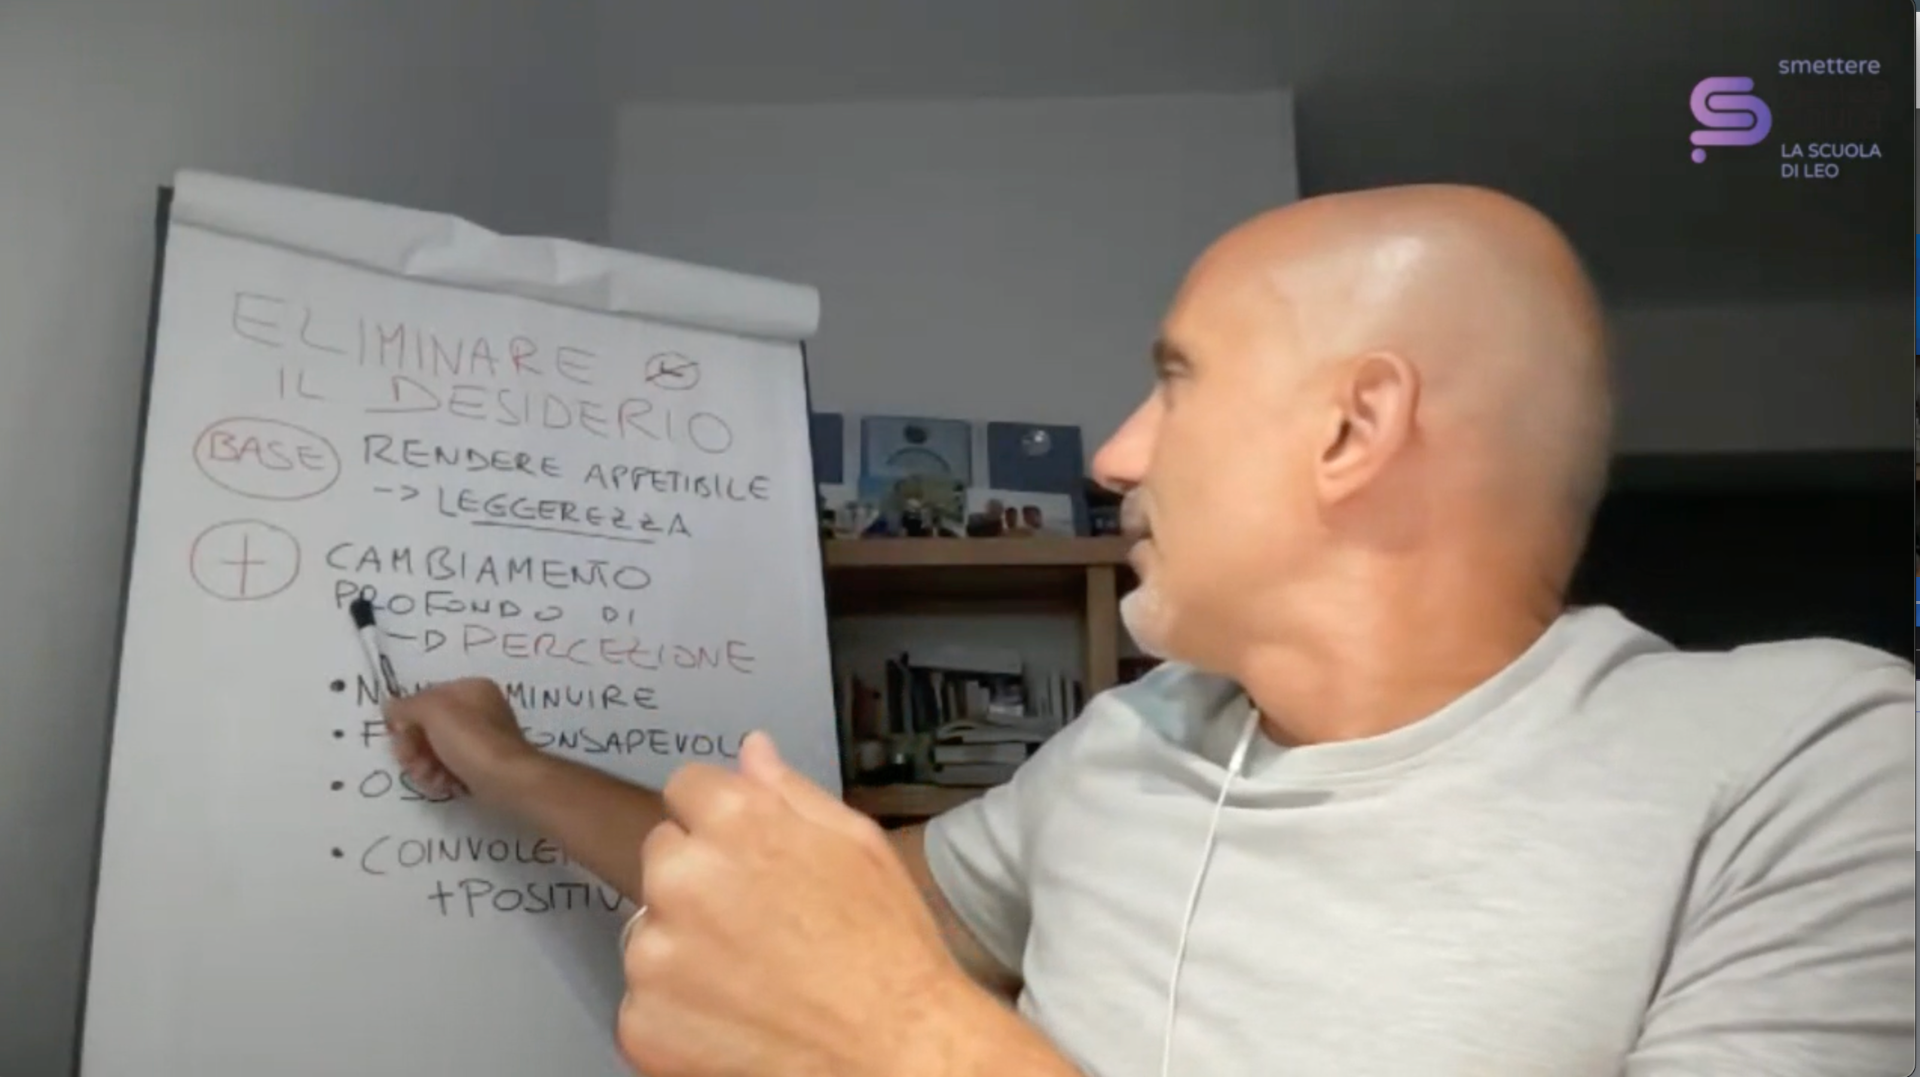 smettere
LA SCUOLA
DI LEO
ELIMINARE
IL DESIDERIO
BASE RENDERE APPETIBILE
-> LEGGEREZZA
+ CAMBIAMENTO
PROFONDO DI
PERCEZIONE
• MINUIRE
•
•
•
+ POSITIV